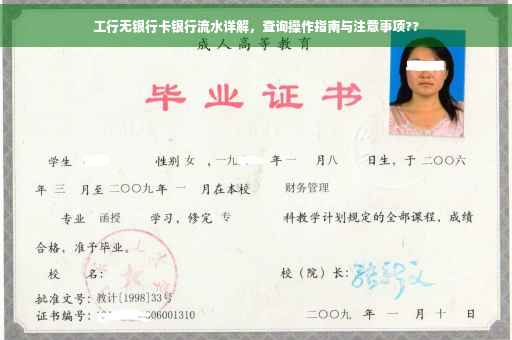 工行无银行卡银行流水详解，查询操作指南与注意事项??
成人高等教育
毕业证书
学生 性别 女 ，一九 年 一 月八 日生，于 二〇〇六
年 三 月至 二〇〇九 年 一 月在本校 财务管理
专业 函授 学习，修完 专 科教学计划规定的全部课程，成绩
合格，准予毕业。
校 名： 校（院）长：
批准文号：教计[1998]33号
证书编号： 06001310 二〇〇九 年 一 月 十 日